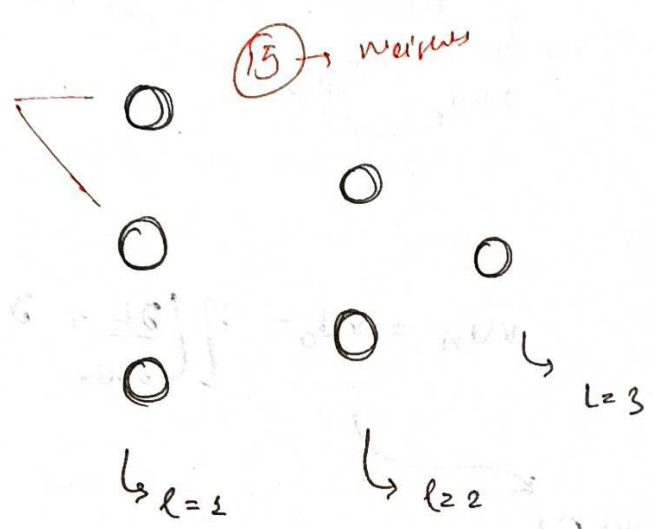 15 → weights
L = 3
l = 1
l = 2